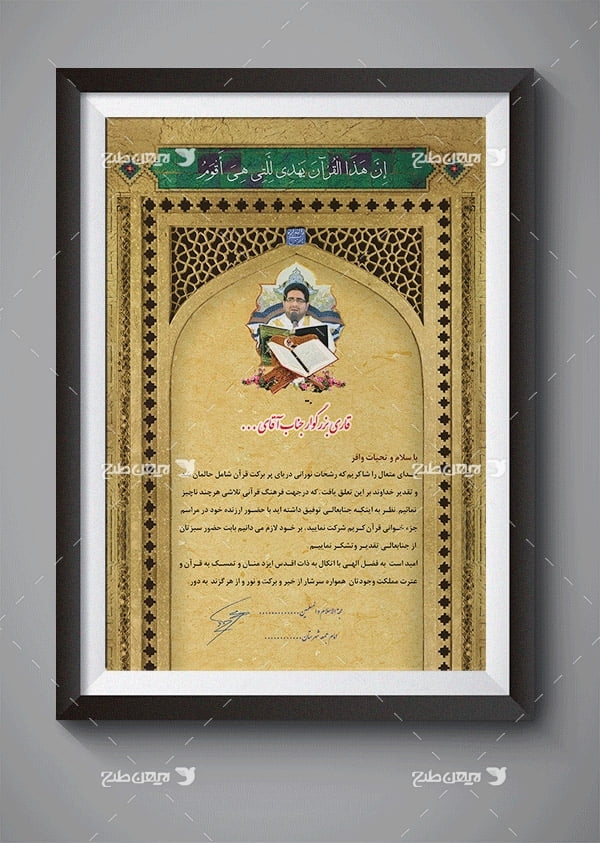 إِنَّ هَذَا الْقُرْآنَ يَهْدِي لِلَّتِي هِيَ أَقْوَمُ
میهن طرح
میهن طرح
قاری بزرگوار جناب آقای ...
با سلام و تحیات وافر
خدای متعال را شاکریم که رشحات نورانی دریای پر برکت قرآن شامل حالمان شد
و تقدیر خداوند بر این تعلق یافت، که در جهت فرهنگ قرآنی تلاشی هرچند ناچیز
نمائیم. نظر به اینکه جنابعالی توفیق داشته اید با حضور ارزنده خود در مراسم
جزء خوانی قرآن کریم شرکت نمایید، بر خود لازم می دانیم بابت حضور سبزتان
از جنابعالی تقدیر و تشکر نماییم.
امید است به فضل الهی با اتکال به ذات اقدس ایزد منان و تمسک به قرآن و
عترت مملکت وجودتان همواره سرشار از خیر و برکت و نور و از هر گزند به دور.
حجة الاسلام و المسلمین..............
امام جمعه شهرستان............
میهن طرح
میهن طرح